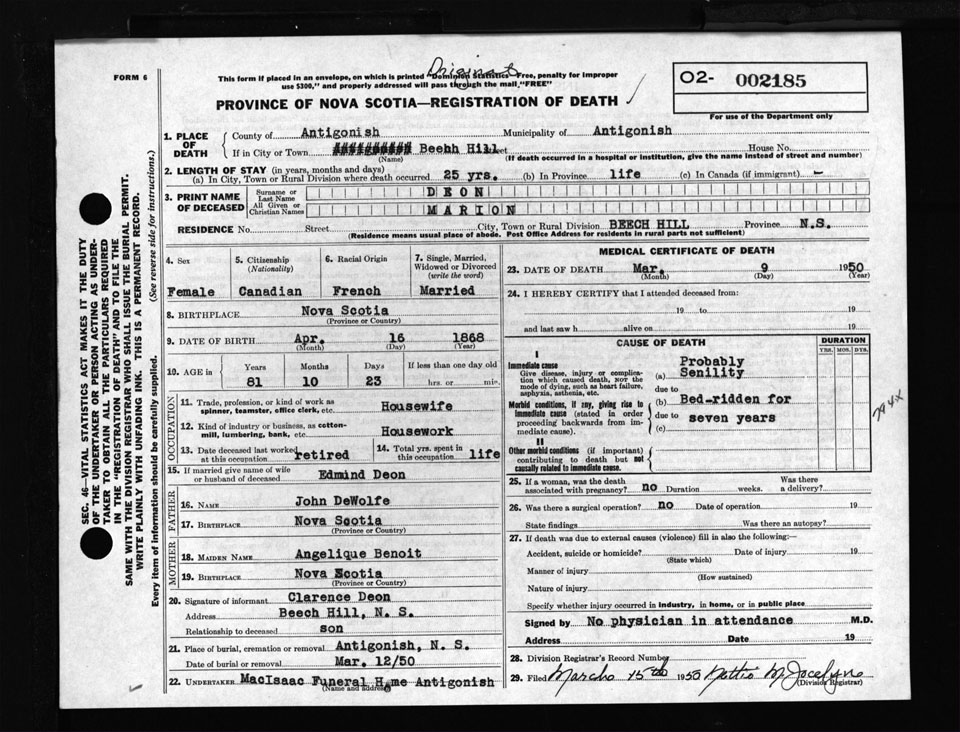 FORM 6
Original
This form if placed in an envelope, on which is printed "Dominion Statistics—Free, penalty for improper
use $300," and properly addressed will pass through the mail "FREE"
PROVINCE OF NOVA SCOTIA—REGISTRATION OF DEATH ✓
O2- 002185
For use of the Department only
1. PLACE OF DEATH
County of Antigonish Municipality of Antigonish
If in City or Town ########## Beehh Hill Street House No.
(Name) (If death occurred in a hospital or institution, give the name instead of street and number)
2. LENGTH OF STAY (in years, months and days)
(a) In City, Town or Rural Division where death occurred 25 yrs. (b) In Province life (c) In Canada (if immigrant) -
3. PRINT NAME OF DECEASED
Surname or Last Name DEON
All Given or Christian Names MARION
RESIDENCE No. Street City, Town or Rural Division BEECH HILL Province N.S.
(Residence means usual place of abode. Post Office Address for residents in rural parts not sufficient)
4. Sex
Female
5. Citizenship
(Nationality)
Canadian
6. Racial Origin
French
7. Single, Married,
Widowed or Divorced
(write the word)
Married
8. BIRTHPLACE Nova Scotia
(Province or Country)
9. DATE OF BIRTH Apr. 16 1868
(Month) (Day) (Year)
10. AGE in
Years Months Days If less than one day old
81 10 23 hrs. or min.
OCCUPATION
11. Trade, profession, or kind of work as
spinner, teamster, office clerk, etc. Housewife
12. Kind of industry or business, as cotton-
mill, lumbering, bank, etc. Housework
13. Date deceased last worked
at this occupation retired
14. Total yrs. spent in
this occupation life
15. If married give name of wife
or husband of deceased Edmind Deon
FATHER
16. NAME John DeWolfe
17. BIRTHPLACE Nova Scotia
(Province or Country)
MOTHER
18. MAIDEN NAME Angelique Benoit
19. BIRTHPLACE Nova Scotia
(Province or Country)
20. Signature of informant Clarence Deon
Address Beech Hill, N. S.
Relationship to deceased son
21. Place of burial, cremation or removal Antigonish, N. S.
Date of burial or removal Mar. 12/50
22. UNDERTAKER MacIsaac Funeral Home Antigonish
(Name and address)
MEDICAL CERTIFICATE OF DEATH
23. DATE OF DEATH Mar. 9 1950
(Month) (Day) (Year)
24. I HEREBY CERTIFY that I attended deceased from:
19 to 19
and last saw h alive on 19
CAUSE OF DEATH
DURATION
YRS. MOS. DYS.
I
Immediate cause
Give disease, injury or complica-
tion which caused death, not the
mode of dying, such as heart failure,
asphyxia, asthenia, etc.
Morbid conditions, if any, giving rise to
immediate cause (stated in order
proceeding backwards from im-
mediate cause).
II
Other morbid conditions (if important)
contributing to death but not
causally related to immediate cause.
Probably
(a) Senility
due to
(b) Bed-ridden for
due to seven years
(c)
794X
25. If a woman, was the death
associated with pregnancy? no Duration weeks. Was there
a delivery?
26. Was there a surgical operation? no Date of operation 19
State findings Was there an autopsy?
27. If death was due to external causes (violence) fill in also the following:—
Accident, suicide or homicide? Date of injury 19
(State which)
Manner of injury
(How sustained)
Nature of injury
Specify whether injury occurred in industry, in home, or in public place
Signed by No physician in attendance M.D.
Address Date 19
28. Division Registrar's Record Number
29. Filed March 15th 1950 Nettie M Jocelyn
(Division Registrar)
SEC. 46—VITAL STATISTICS ACT MAKES IT THE DUTY
OF THE UNDERTAKER OR PERSON ACTING AS UNDER-
TAKER TO OBTAIN ALL THE PARTICULARS REQUIRED
IN THE "REGISTRATION OF DEATH" AND TO FILE THE
SAME WITH THE DIVISION REGISTRAR WHO SHALL ISSUE THE BURIAL PERMIT.
WRITE PLAINLY WITH UNFADING INK. THIS IS A PERMANENT RECORD.
Every item of information should be carefully supplied. (See reverse side for instructions.)